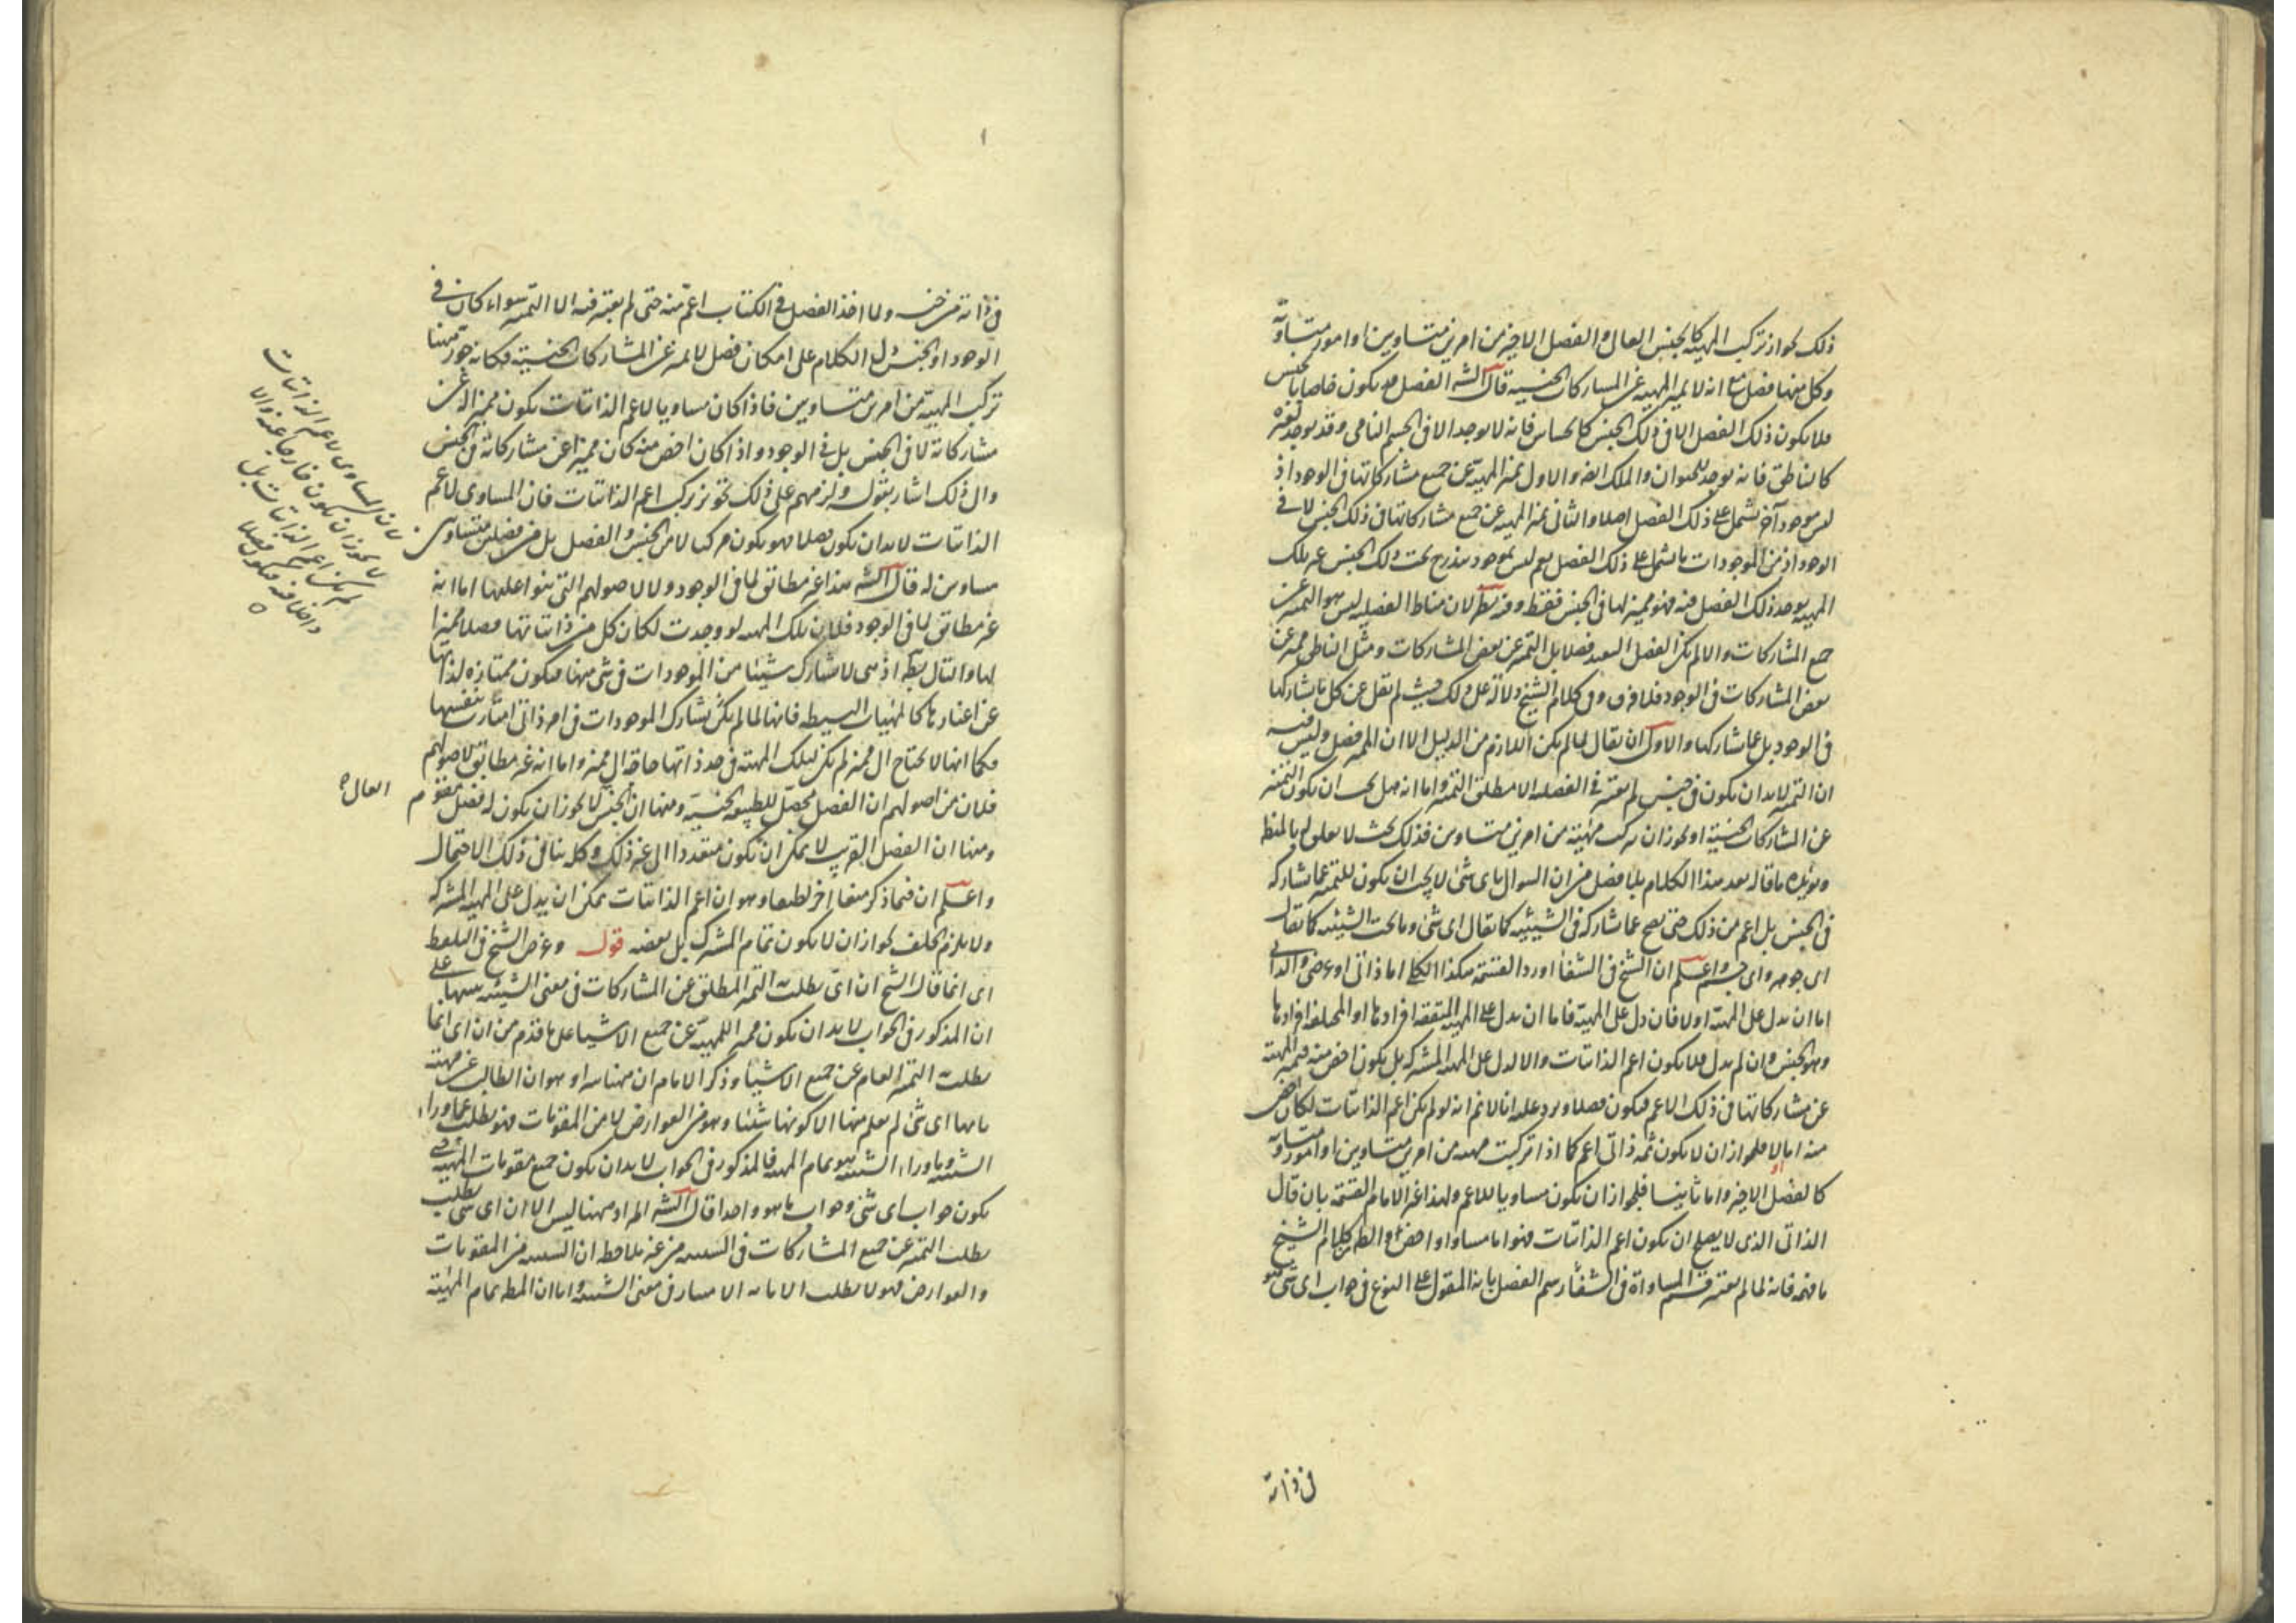 ذلك لجواز تركب المهية كالجنس العالى والفصل الاخير من امرين متساويين او امور متساوية
وكل منها فصل مع انه لا يميز المهية عن المشاركات الجنسية قال الشه الفصل قد يكون خاصا بالجنس
فلا يكون ذلك الفصل الا فى ذلك الجنس كالحساس فانه لا يوجد الا فى الجسم النامى وقد يوجد لغيره
كالناطق فانه يوجد للحيوان والملك والاول يميز المهية عن جميع مشاركاتها فى الوجود اذ
ليس موجود آخر يشتمل على ذلك الفصل اصلا والثانى يميز المهية عن جميع مشاركاتها فى ذلك الجنس لا فى
الوجود اذ من الموجودات ما يشتمل على ذلك الفصل نعم ليس بموجود مندرج تحت ذلك الجنس غير تلك
المهية يوجد ذلك الفصل فيه فهو مميز لها فى الجنس فقط وفيه نظر لان مناط الفصلية ليس هو التميز عن
جميع المشاركات والا لم يكن الفصل البعيد فصلا بل التميز عن بعض المشاركات ومثل الناطق مميز عن
بعض المشاركات فى الوجود فلا فرق وفى كلام الشيخ دلالة على ذلك حيث لم يقل عن كل ما يشاركها
فى الوجود بل عما يشاركها والاولى ان يقال لما لم يكن اللازم من الدليل الا ان المميز فصل وليس فيه
ان التميز لابد ان يكون فى جنس لم يعتبر فى الفصلية الا مطلق التميز واما انه هل يجب ان يكون التميز
عن المشاركات الجنسية او يجوز ان تركب مهية من امرين متساويين فذلك بحث لا تعلق له بالمنطق
ويؤيده ما قال بعد هذا الكلام بلا فصل من ان السوال باى شئ لا يجب ان يكون للتميز عما يشاركه
فى الجنس بل اعم من ذلك حتى يصح عما شاركه فى الشيئية كما يقال اى شئ وما تحت الشيئية كما يقال
اى جوهر واى جسم واعلم ان الشيخ فى الشفا اورد القسمة هكذا الكلى اما ذاتى او عرضى والذاتى
اما ان يدل على المهية او لا فان دل على المهية فاما ان يدل على المهية المتفقة افرادها او المختلفة افرادها
وهو الجنس وان لم يدل فلا يكون اعم الذاتيات والا لدل على المهية المشتركة بل يكون اخص منه فيميز المهية
عن مشاركاتها فى ذلك الاعم فيكون فصلا ويرد عليه انا لا نم انه لو لم يكن اعم الذاتيات لكان اخص
منه اما اولا فلجواز ان لا يكون ثمه ذاتى اعم كما اذا تركبت مهية من امرين متساويين او امور متساوية
كالفصل الاخير واما ثانيا فلجواز ان يكون مساويا للاعم ولهذا غير الامام القسمة بان قال
الذاتى الذى لا يصلح ان يكون اعم الذاتيات فهو اما مساو او اخص والظ كلام الشيخ
ما فهمه فانه لما لم يعتبر قسم المساواة فى الشفا رسم الفصل بانه المقول على النوع فى جواب اى شئ هو
فى ذاته
فى ذاته من جنسه ولما اخذ الفصل فى الكتاب اعم منه حتى لم يعتبر فيه الا التميز سواء كان فى
الوجود او الجنس الكلام على امكان فصل لا يميز عن المشاركات الجنسية فكانه جوز ههنا
تركب المهية من امرين متساويين فاذا كان مساويا لاعم الذاتيات يكون مميزا له عن
مشاركاته لا فى الجنس بل فى الوجود واذا كان اخص منه كان مميزا عن مشاركاته فى الجنس
والى ذلك اشار بقوله ولزمهم على ذلك تجويز تركب اعم الذاتيات فان المساوى لاعم
الذاتيات لابد ان يكون فصلا فهو يكون مركبا لا من الجنس والفصل بل من فصلين متساويين
مساويين له قال الشه هذا غير مطابق لما فى الوجود ولا لاصولهم التى بنوا عليها اما انه
غير مطابق لما فى الوجود فلان تلك المهية لو وجدت لكان كل من ذاتياتها فصلا مميزا
لها والتالى بط اذ هى لا تشارك شيئا من الموجودات فى شئ منها فيكون ممتازة لذاتها
عن اغيارها كالمهيات البسيطة فانها لما لم يكن تشارك الموجودات فى امر ذاتى امتازت بنفسها
فكما انها لا تحتاج الى مميز لم يكن لتلك المهية فى حد ذاتها حاجة الى مميز واما انه غير مطابق لاصولهم
فلان من اصولهم ان الفصل محصل للطبيعة الجنسية ومنها ان الجنس لا يجوز ان يكون له فصل مقوم
ومنها ان الفصل القريب لا يمكن ان يكون متعددا الى غير ذلك وكله ينافى ذلك الاحتمال
واعلم ان فيما ذكر منعا آخر لطيفا وهو ان اعم الذاتيات يمكن ان يدل على المهية المشتركة
ولا يلزم الخلف لجواز ان لا يكون تمام المشترك بل بعضه قوله وغرض الشيخ فى التلفظ
اى انما قال الشيخ ان اى يطلب به التميز المطلق عن المشاركات فى معنى الشيئية تنبيها على
ان المذكور فى الجواب لابد ان يكون مميزا للمهية عن جميع الاشيا على ما قدم من ان اى انما
يطلب به التميز العام عن جميع الاشيا وذكر الامام ان ههنا وهو ان الطالب عن مهية
ما بها اى شئ لم يعلم منها الا كونها شيئا وهو من العوارض لا من المقومات فهو يطلب ما وراء
الشيئية وما وراء الشيئية هو تمام المهية فالمذكور فى الجواب لابد ان يكون جميع مقومات المهية حتى
يكون جواب اى شئ وجواب ما هو واحدا قال الشه المراد ههنا ليس الا ان اى شئ يطلب
يطلب التميز عن جميع المشاركات فى الشيئية من غير ملاحظة ان الشيئية من المقومات
والعوارض فهو لا يطلب الا ما به الامتياز فى معنى الشيئية واما ان المط تمام المهية
لان المساوى لاعم الذاتيات
لا يجوز ان يكون خارجا عنه والا
لم يكن اعم الذاتيات بل
داخلا فيه فيكون فصلا
العالى